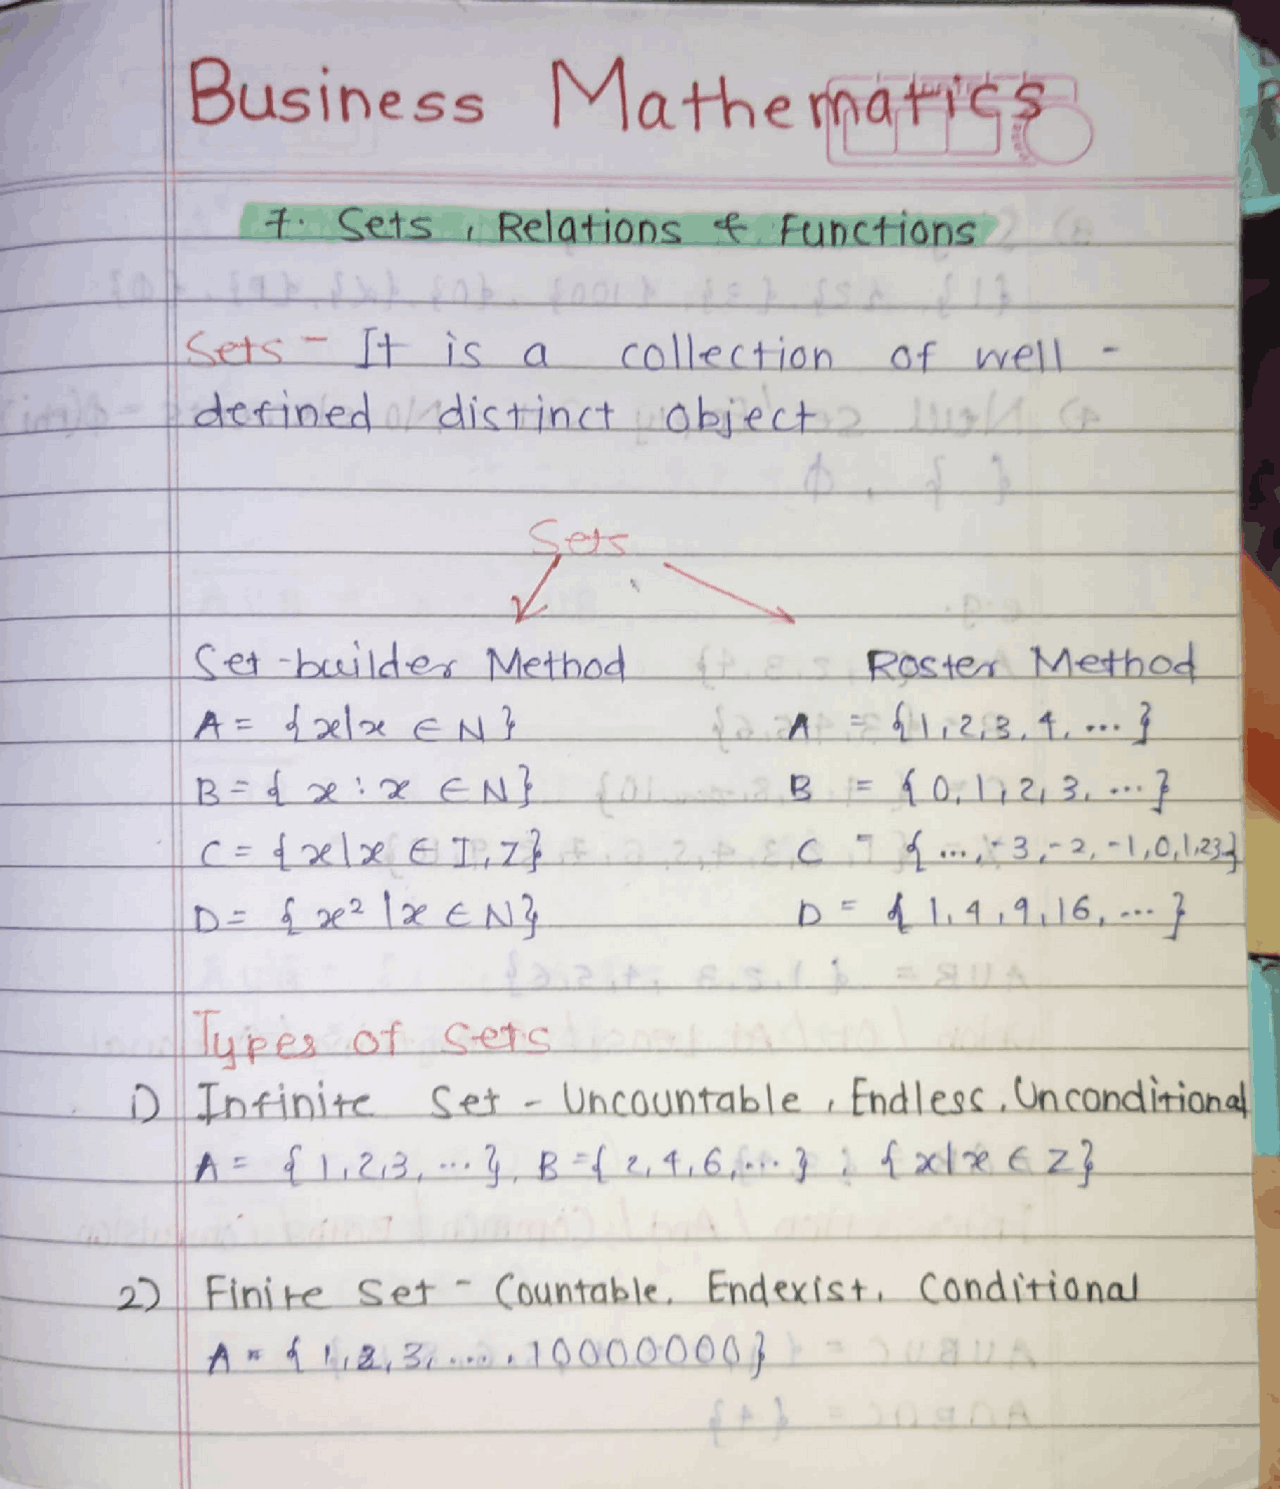 Business Mathematics
7. Sets, Relations & Functions
Sets - It is a collection of well -
defined distinct object
Sets
Set-builder Method Roster Method
A = {x|x ∈ N} A = {1,2,3,4, ...}
B = { x : x ∈ N} B = {0,1,2,3, ...}
C = {x|x ∈ I,Z} C = {...,-3,-2,-1,0,1,23}
D = {x² |x ∈ N} D = {1,4,9,16, ...}
Types of Sets
1) Infinite Set - Uncountable, Endless, Unconditional
A = {1,2,3, ...}, B = {2,4,6,...} ; {x|x ∈ Z}
2) Finite Set - Countable, Endexist, Conditional
A = {1,2,3, .... , 10000000}